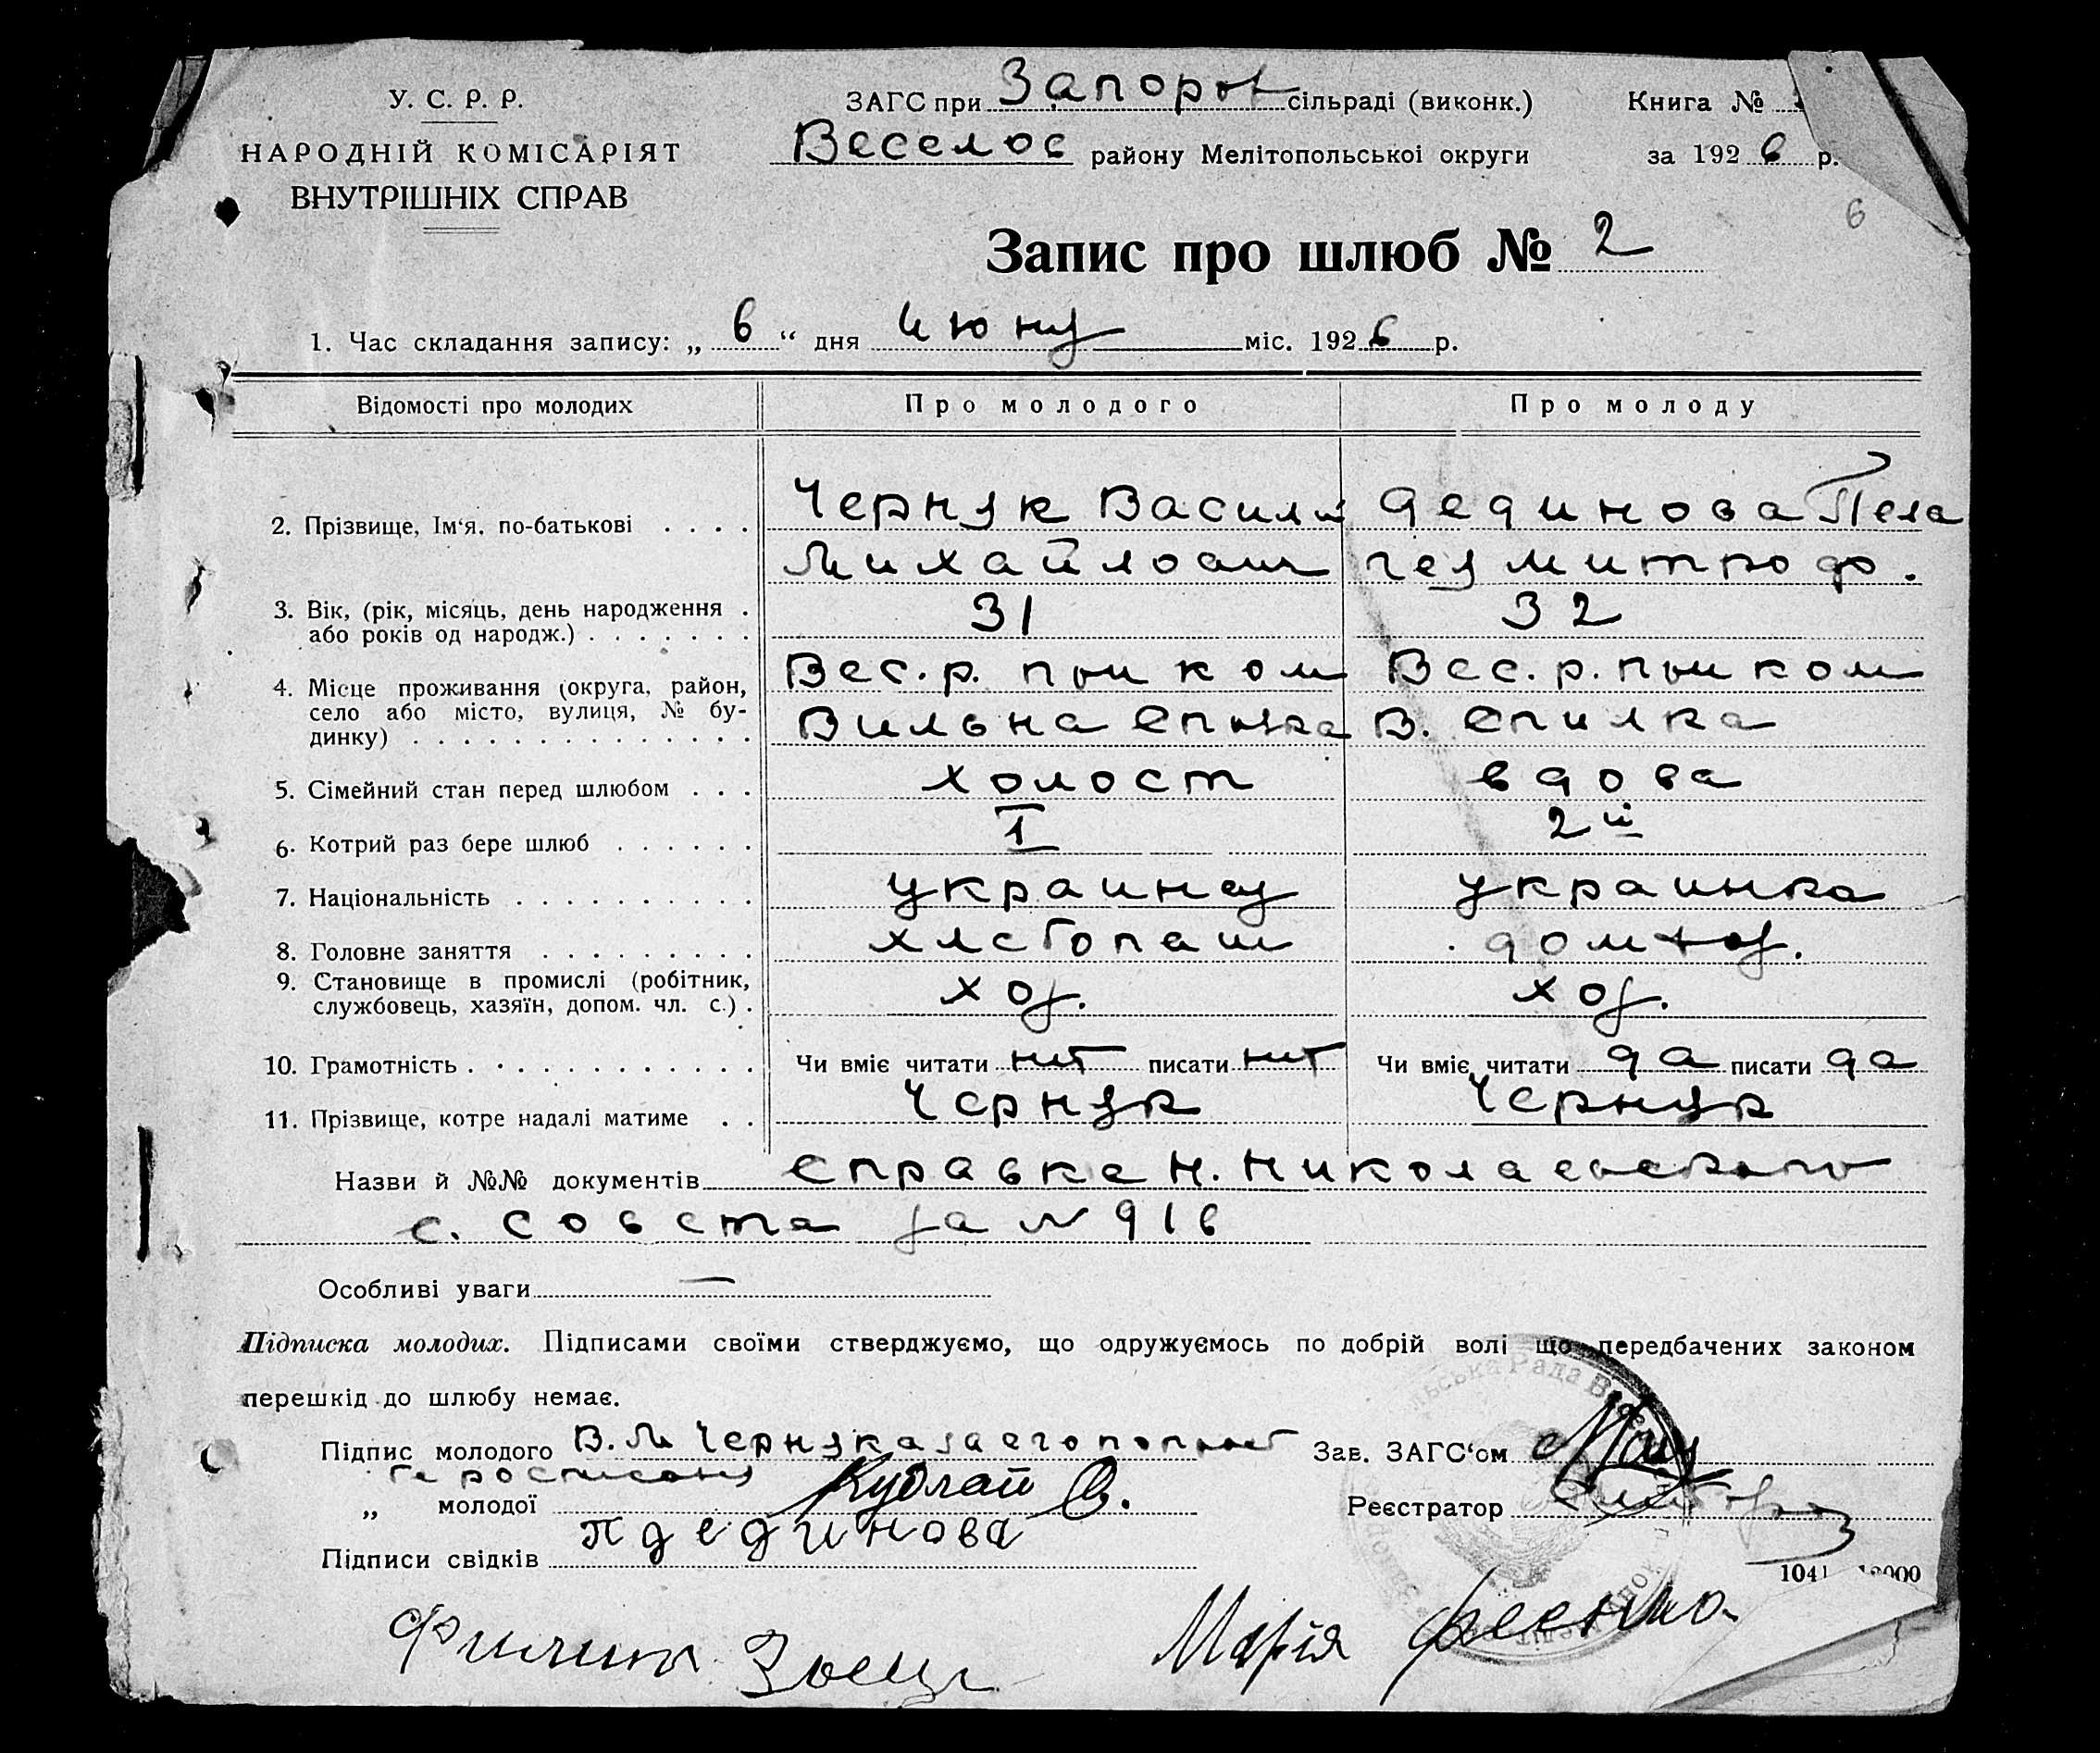 У. С. Р. Р.
НАРОДНІЙ КОМІСАРІЯТ
ВНУТРІШНІХ СПРАВ
ЗАГС при Запорож сільраді (виконк.)
Веселое району Мелітопольської округи
Книга №
за 1926 р.
6
Запис про шлюб № 2
1. Час складання запису: „ 6 “ дня июня міс. 1926 р.
Відомості про молодих Про молодого Про молоду
2. Прізвище, Ім‘я, по-батькові . . . . Черняк Василий Дединова Пела
Михайлович гея Митроф.
3. Вік, (рік, місяць, день народження . або років од народж.) . . . . . . . 31 32
4. Місце проживання (округа, район, Вес. р. Вес. р.
село або місто, вулиця, № бу-
динку) . . . . . . . . . . . . . . Вильна Спилка В. Спилка
5. Сімейний стан перед шлюбом . . . холост вдова
6. Котрий раз бере шлюб . . . . . . I 2й
7. Національність . . . . . . . . . . украинец украинка
8. Головне заняття . . . . . . . . . хлебопаш домхоз.
9. Становище в промислі (робітник,
службовець, хазяїн, допом. чл. с.) . хоз. хоз.
10. Грамотність . . . . . . . . . . . . Чи вміє читати нит писати нит Чи вміє читати да писати да
11. Прізвище, котре надалі матиме . . Черняк Черняк
Назви й №№ документів справка Н. Николаевского
с. совета за № 916
Особливі уваги —
Підписка молодих. Підписами своїми стверджуємо, що одружуємось по добрій волі що передбачених законом
перешкід до шлюбу немає.
Підпис молодого В. М Черняка за его
росписався Кудлай О.
„ молодої
П Дединова
Підписи свідків
Зав. ЗАГС‘ом
Реєстратор
1041
Филип Заець Марія